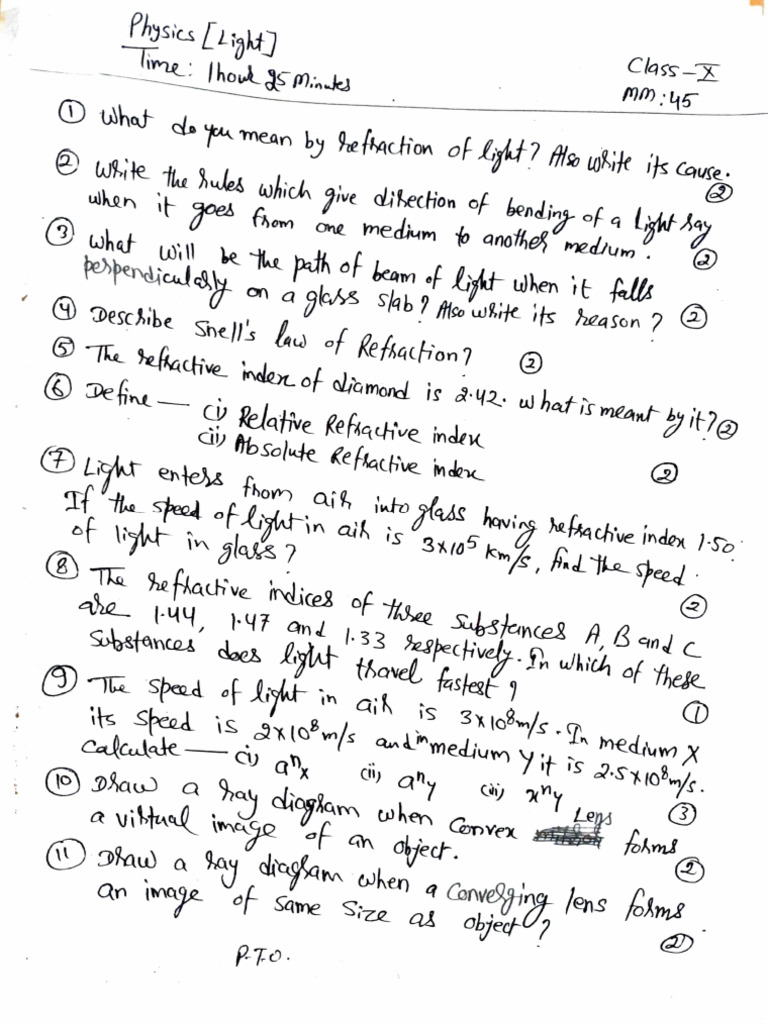 Physics [Light]
Time: 1 hour 25 Minutes
Class - X
MM: 45
① What do you mean by refraction of light? Also write its cause.
②
② Write the rules which give direction of bending of a light ray
when it goes from one medium to another medium. ②
③ What will be the path of beam of light when it falls
perpendicularly on a glass slab? Also write its reason? ②
④ Describe Snell's law of Refraction? ②
⑤ The refractive index of diamond is 2.42. What is meant by it? ②
⑥ Define — (i) Relative Refractive index
(ii) Absolute Refractive index ②
⑦ Light enters from air into glass having refractive index 1.50.
If the speed of light in air is 3×10⁵ km/s, find the speed
of light in glass? ②
⑧ The refractive indices of three substances A, B and C
are 1.44, 1.47 and 1.33 respectively. In which of these
substances does light travel fastest? ①
⑨ The speed of light in air is 3×10⁸ m/s. In medium X
its speed is 2×10⁸ m/s and in medium Y it is 2.5×10⁸ m/s.
Calculate — (i) aⁿx (ii) aⁿy (iii) xⁿy ③
⑩ Draw a ray diagram when convex Lens forms
a virtual image of an object. ②
⑪ Draw a ray diagram when a converging lens forms
an image of same size as object? ②
P.T.O.